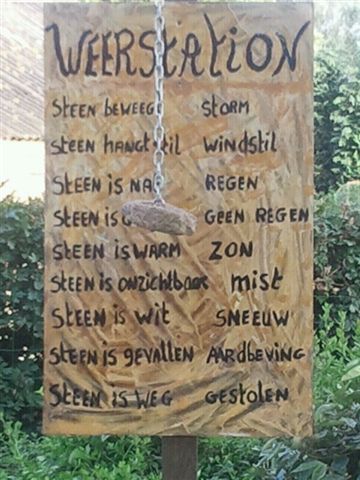 WEERSTATION
STEEN BEWEEGT STORM
STEEN HANGT STIL WINDSTIL
STEEN IS NAT REGEN
STEEN IS GEEN REGEN
STEEN IS WARM ZON
STEEN IS ONZICHTBAAR MIST
STEEN IS WIT SNEEUW
STEEN IS GEVALLEN AARDBEVING
STEEN IS WEG GESTOLEN